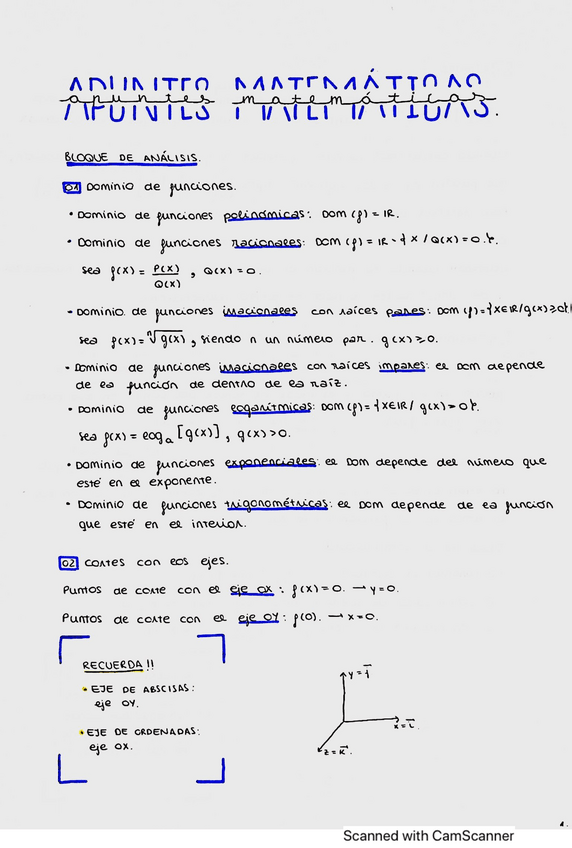 APUNTES MATEMÁTICAS.
apuntes matemáticas
BLOQUE DE ANÁLISIS.
01 Dominio de funciones.
• Dominio de funciones polinómicas: Dom (f) = IR.
• Dominio de funciones racionales: Dom (f) = IR - { x / Q(x) = 0 }.
sea f(x) = P(x)/Q(x) , Q(x) = 0.
• Dominio de funciones irracionales con raíces pares: Dom (f) = {x∈IR/g(x)≥0}
sea f(x) = ⁿ√g(x) , siendo n un número par. g(x) ≥ 0.
• Dominio de funciones irracionales con raíces impares: el Dom depende
de la función de dentro de la raíz.
• Dominio de funciones logarítmicas: Dom (f) = {x∈IR / g(x) > 0}.
sea f(x) = logₐ [g(x)] , g(x) > 0.
• Dominio de funciones exponenciales: el Dom depende del número que
esté en el exponente.
• Dominio de funciones trigonométricas: el Dom depende de la función
que esté en el interior.
02 Cortes con los ejes.
Puntos de corte con el eje OX : f(x) = 0. → y = 0.
Puntos de corte con el eje OY : f(0). → x = 0.
RECUERDA !!
• EJE DE ABSCISAS:
eje OY.
• EJE DE ORDENADAS:
eje OX.
y = j
x = i.
z = k.
1.
Scanned with CamScanner